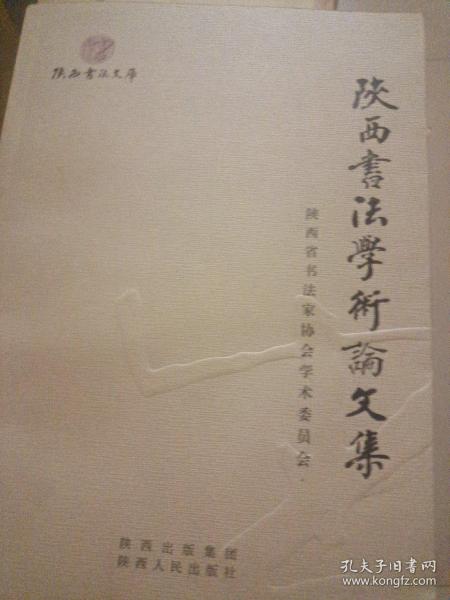 陕西书法文库
陝西書法學術論文集
陕西省书法家协会学术委员会·
陕西出版集团
陕西人民出版社
孔夫子旧书网
www.kongfz.com